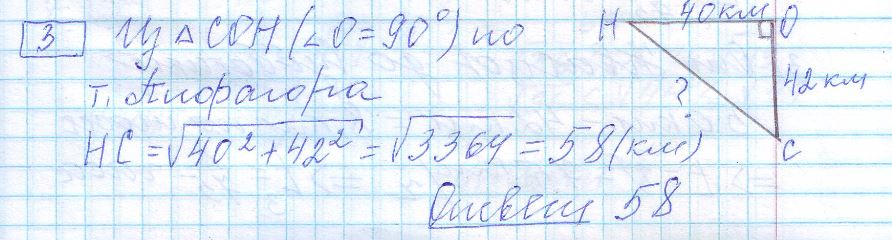 3 Из △ COH (∠O = 90°) по
т. Пифагора
HC = √40² + 42² = √3364 = 58 (км)
Ответ 58
H 40 км O
42 км
?
C